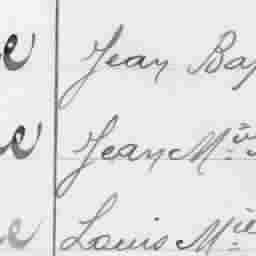 e Jean Bap
e Jean M.in
e Louis M.ie